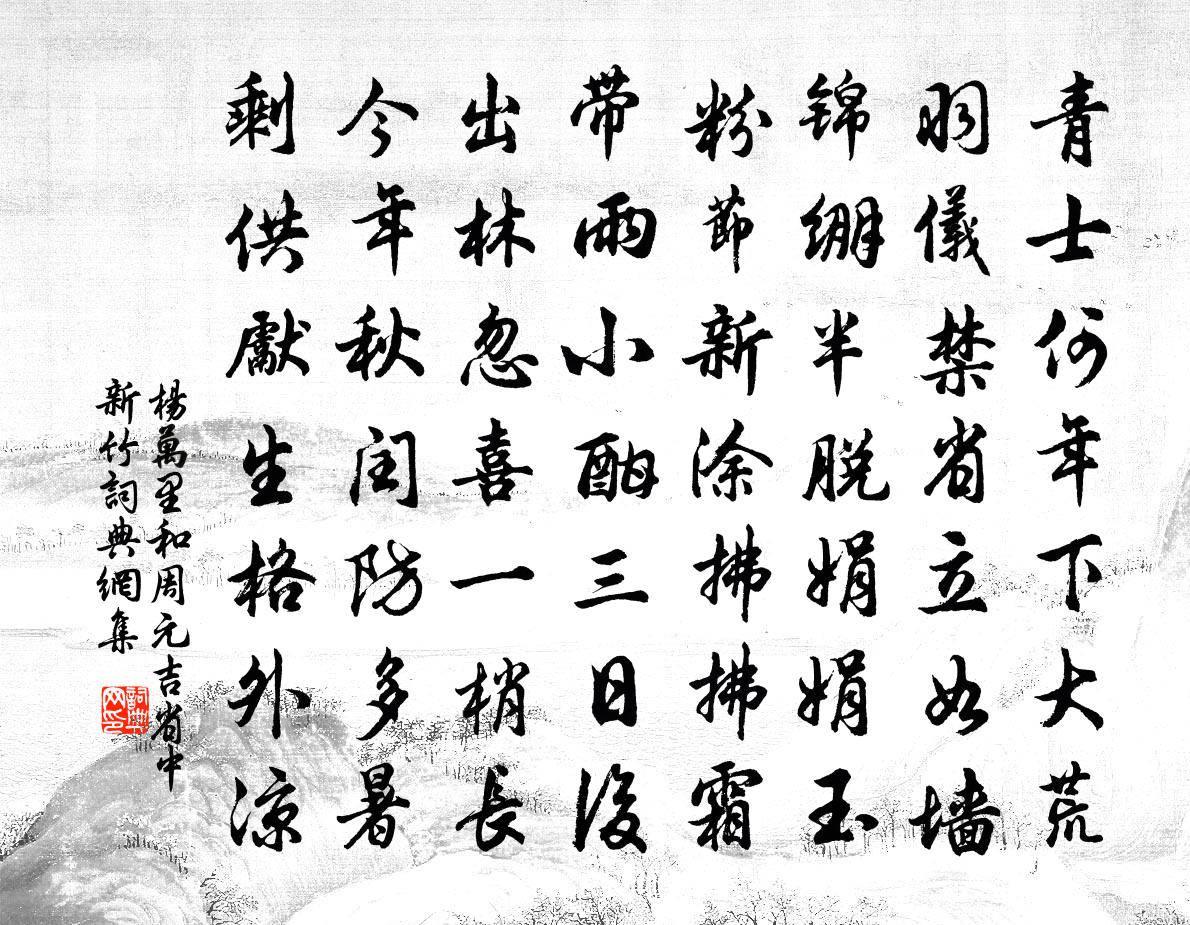 青士何年下大荒
羽儀禁省立如墻
锦绷半脫娟娟玉
粉節新涂拂拂霜
带雨小酣三日後
出林忽喜一梢長
今年秋闰防多暑
剩供獻生格外凉
楊萬里和周元吉省中
新竹詞典網集
詞典网印